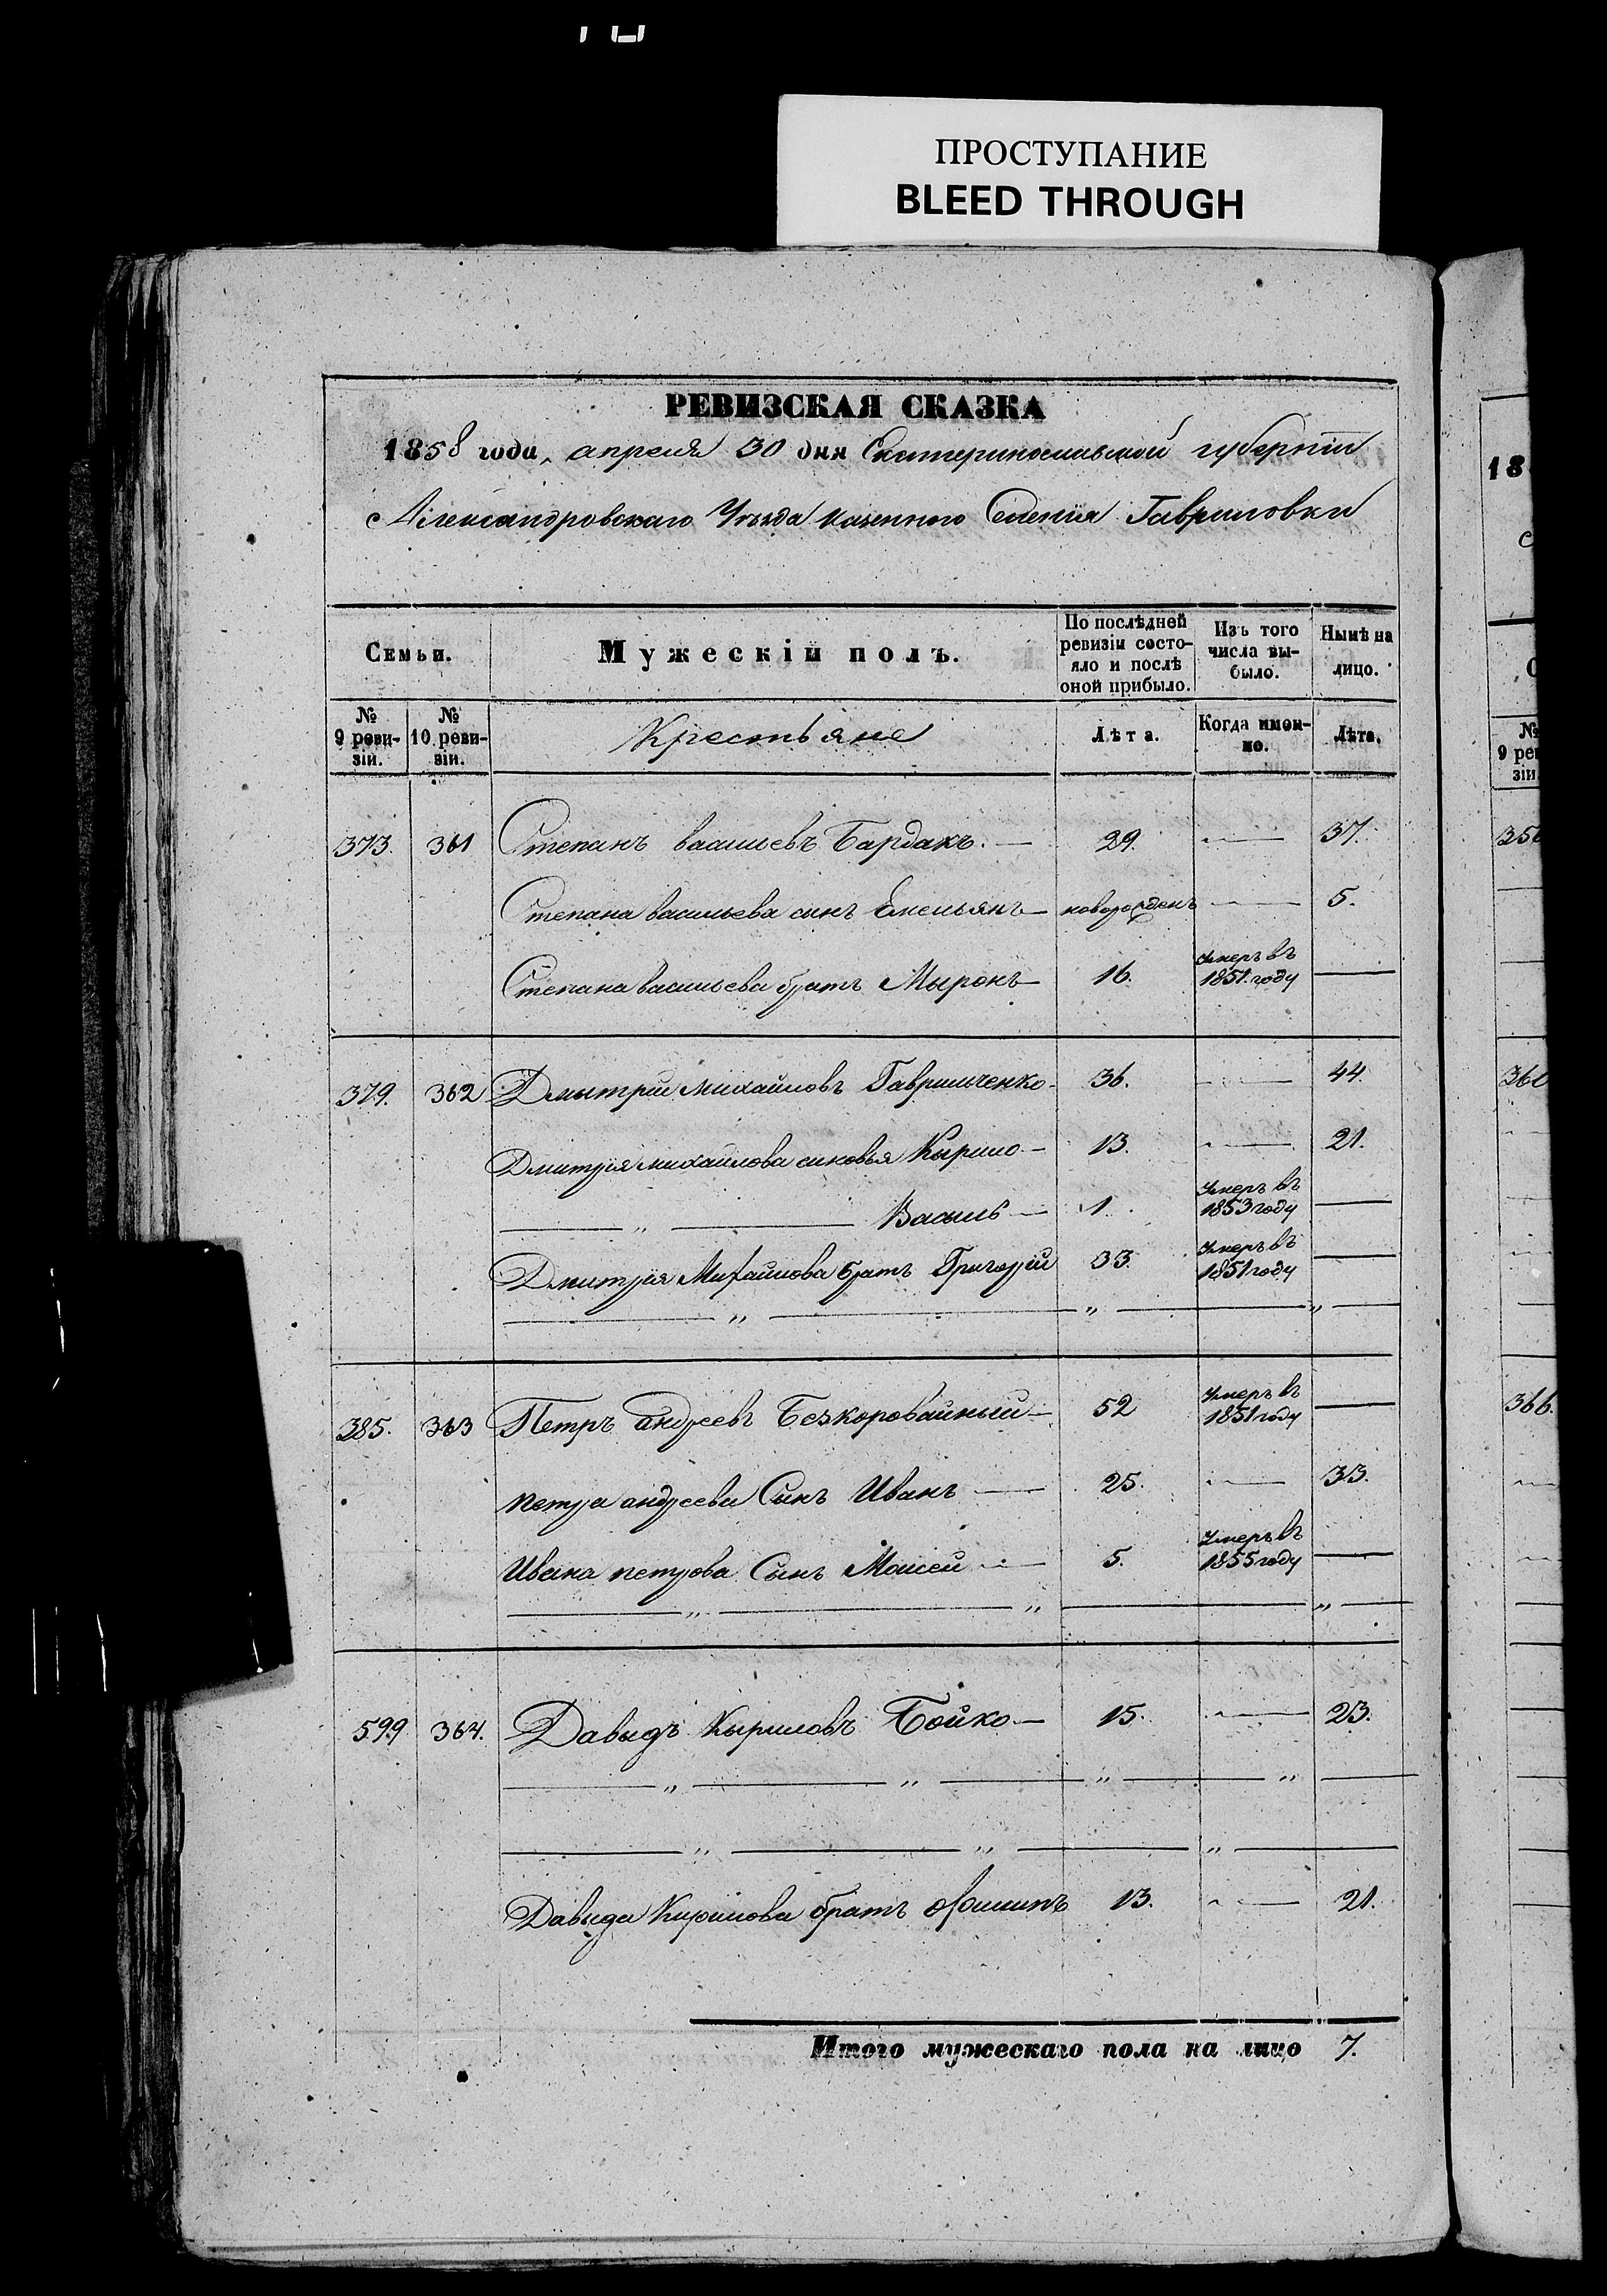 ПРОСТУПАНИЕ
BLEED THROUGH
РЕВИЗСКАЯ СКАЗКА
1858 года, апреля 30 дня Екатеринославской губерніи
Александровскаго Уѣзда казенного Селенія Гавриловки
Семьи.
Мужескій полъ.
По послѣдней ревизіи состо-
яло и послѣ
оной прибыло.
Изъ того
числа вы-
было.
Нынѣ на
лицо.
№
9 реви-
зіи.
№
10 реви-
зіи.
Крестьяне
Лѣта.
Когда имен-
но.
Лѣта.
373. 361 Степанъ васильевъ Бардакъ. — 29. — 37.
Степана васильева сынъ Емельянъ — новорожденъ — 5.
Степана васильева братъ Мыронъ — 16. умеръ въ 1851. году —
379. 362 Дмытрій михайловъ Гавриличенко - 36. — 44.
Дмитрія михайлова синовья Кырило - 13. — 21.
— „ — Василь — 1. Умеръ въ 1853 году —
Дмитрія Михайлова братъ Григорій 33. Умеръ въ 1851 году —
— „ — „ — „ —
385. 363 Петръ андреевъ Безкоровайный — 52 Умеръ въ 1851 году —
петра андреева Сынъ Иванъ — 25. — 33.
Ивана петрова Сынъ Моисей — 5. Умеръ въ 1855 году —
— „ — „ — „ —
599 364. Давыдъ Кыриловъ Бойко — 15. — 23.
— „ — „ — „ — „ —
— „ — „ — „ —
Давыда Кирилова братъ Филипъ 13. — 21.
Итого мужескаго пола на лицо 7.
18
№
9 рев
зіи
366.